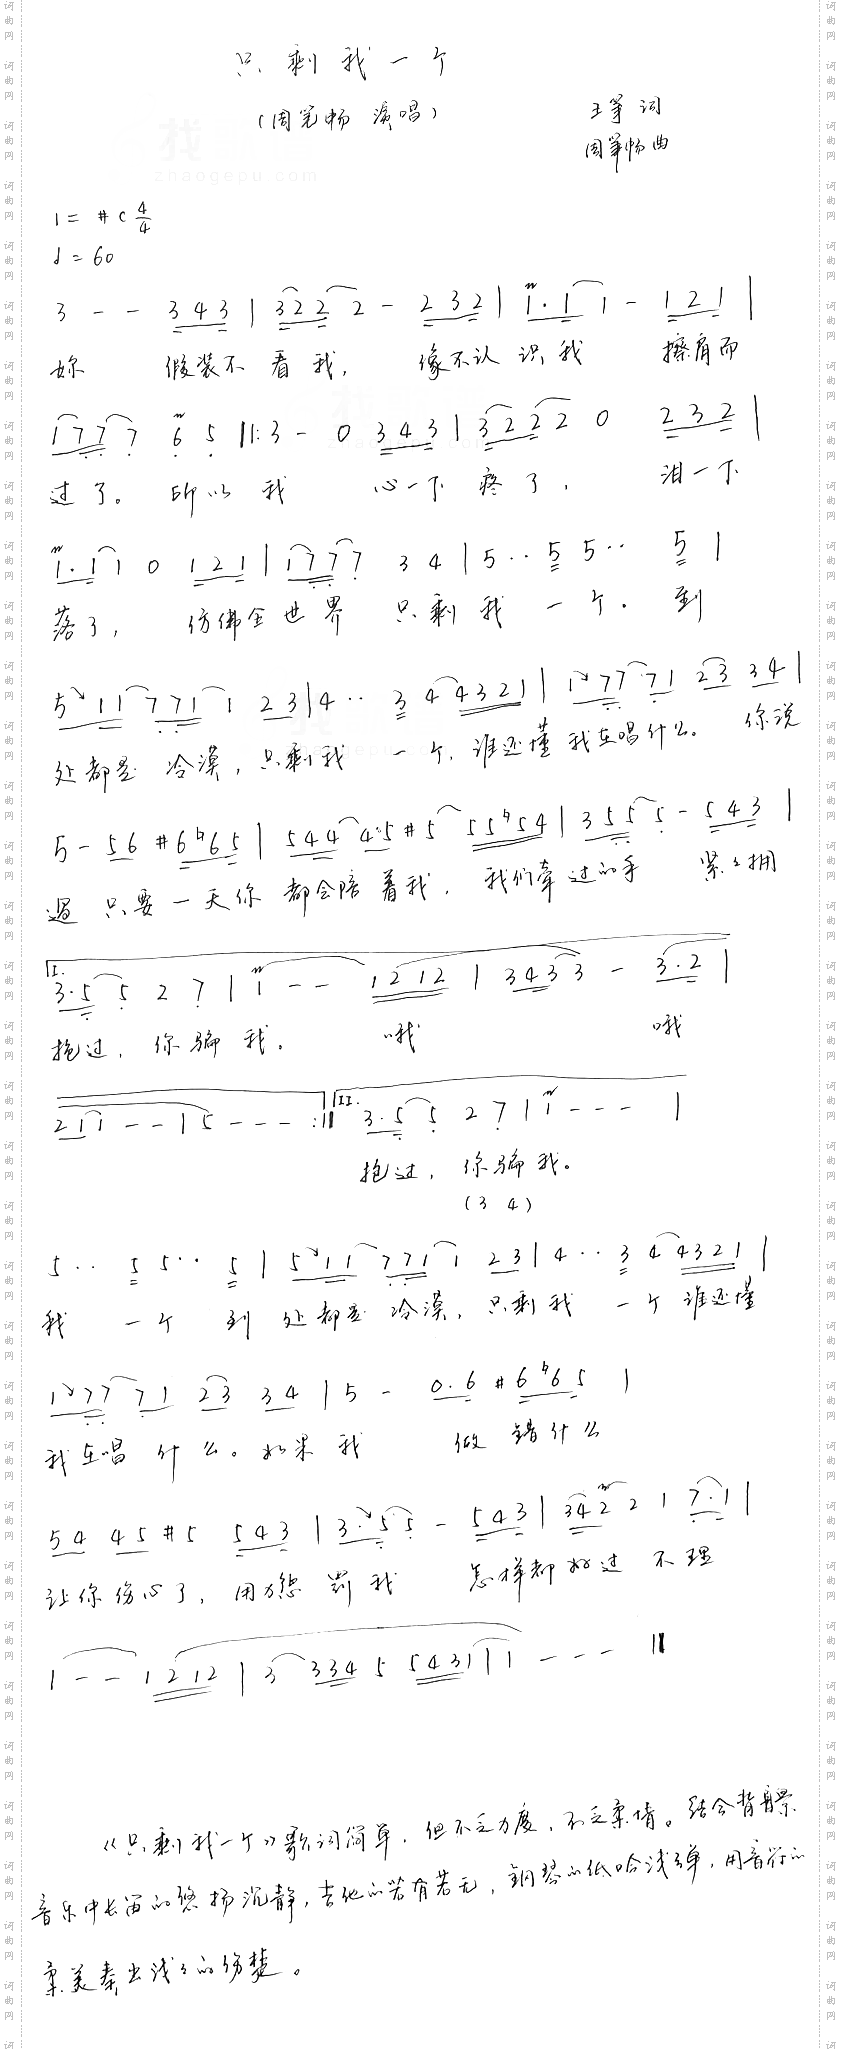 只剩我一个
(周笔畅 演唱)
王筝 词
周笔畅 曲
1= #C 4/4
♩=60
3 - - 3 4 3 | 3 2 2 2 - 2 3 2 | 1 · 1 1 - 1 2 1 |
妳 假装不看我, 像不认识我 擦肩而
1 7 7 7 6 5 ||: 3 - 0 3 4 3 | 3 2 2 2 0 2 3 2 |
过了。所以我 心一下疼了, 泪一下
1 · 1 1 0 1 2 1 | 1 7 7 7 3 4 | 5 · · 5 5 · · 5 |
落了, 仿佛全世界 只剩我一个. 到
5 1 1 7 7 1 1 2 3 | 4 · · 3 4 4 3 2 1 | 1 7 7 7 1 2 3 3 4 |
处都是冷漠, 只剩我一个, 谁还懂我在唱什么。 你说
5 - 5 6 #6 ♮6 5 | 5 4 4 4 5 #5 5 5 ♮5 4 | 3 5 5 5 - 5 4 3 |
过只要一天你都会陪着我, 我们牵过的手 紧紧拥
I.
3 · 5 5 2 7 | 1 - - 1 2 1 2 | 3 4 3 3 - 3 · 2 |
抱过, 你骗我。 哦 哦
2 1 1 - - | 5 - - - :|| II. 3 · 5 5 2 7 | 1 - - - |
抱过, 你骗我。
(3 4)
5 · · 5 5 · · 5 | 5 1 1 7 7 1 1 2 3 | 4 · · 3 4 4 3 2 1 |
我 一个 到处都是冷漠, 只剩我一个 谁还懂
1 7 7 7 1 2 3 3 4 | 5 - 0 · 6 #6 ♮6 5 |
我在唱什么。如果我 做错什么
5 4 4 5 #5 5 4 3 | 3 · 5 5 - 5 4 3 | 3 4 2 2 1 7 · 1 |
让你伤心了, 用力惩罚我 怎样都好过不理
1 - - 1 2 1 2 | 3 3 3 4 5 5 4 3 1 | 1 - - - ||
《只剩我一个》歌词简单, 但不乏力度, 不乏柔情。结合背景
音乐中长笛的悠扬沉静, 吉他的若有若无, 钢琴的低吟浅弹, 用音符的
柔美奏出浅浅的伤楚。
找歌谱
zhaogepu.com
词曲网